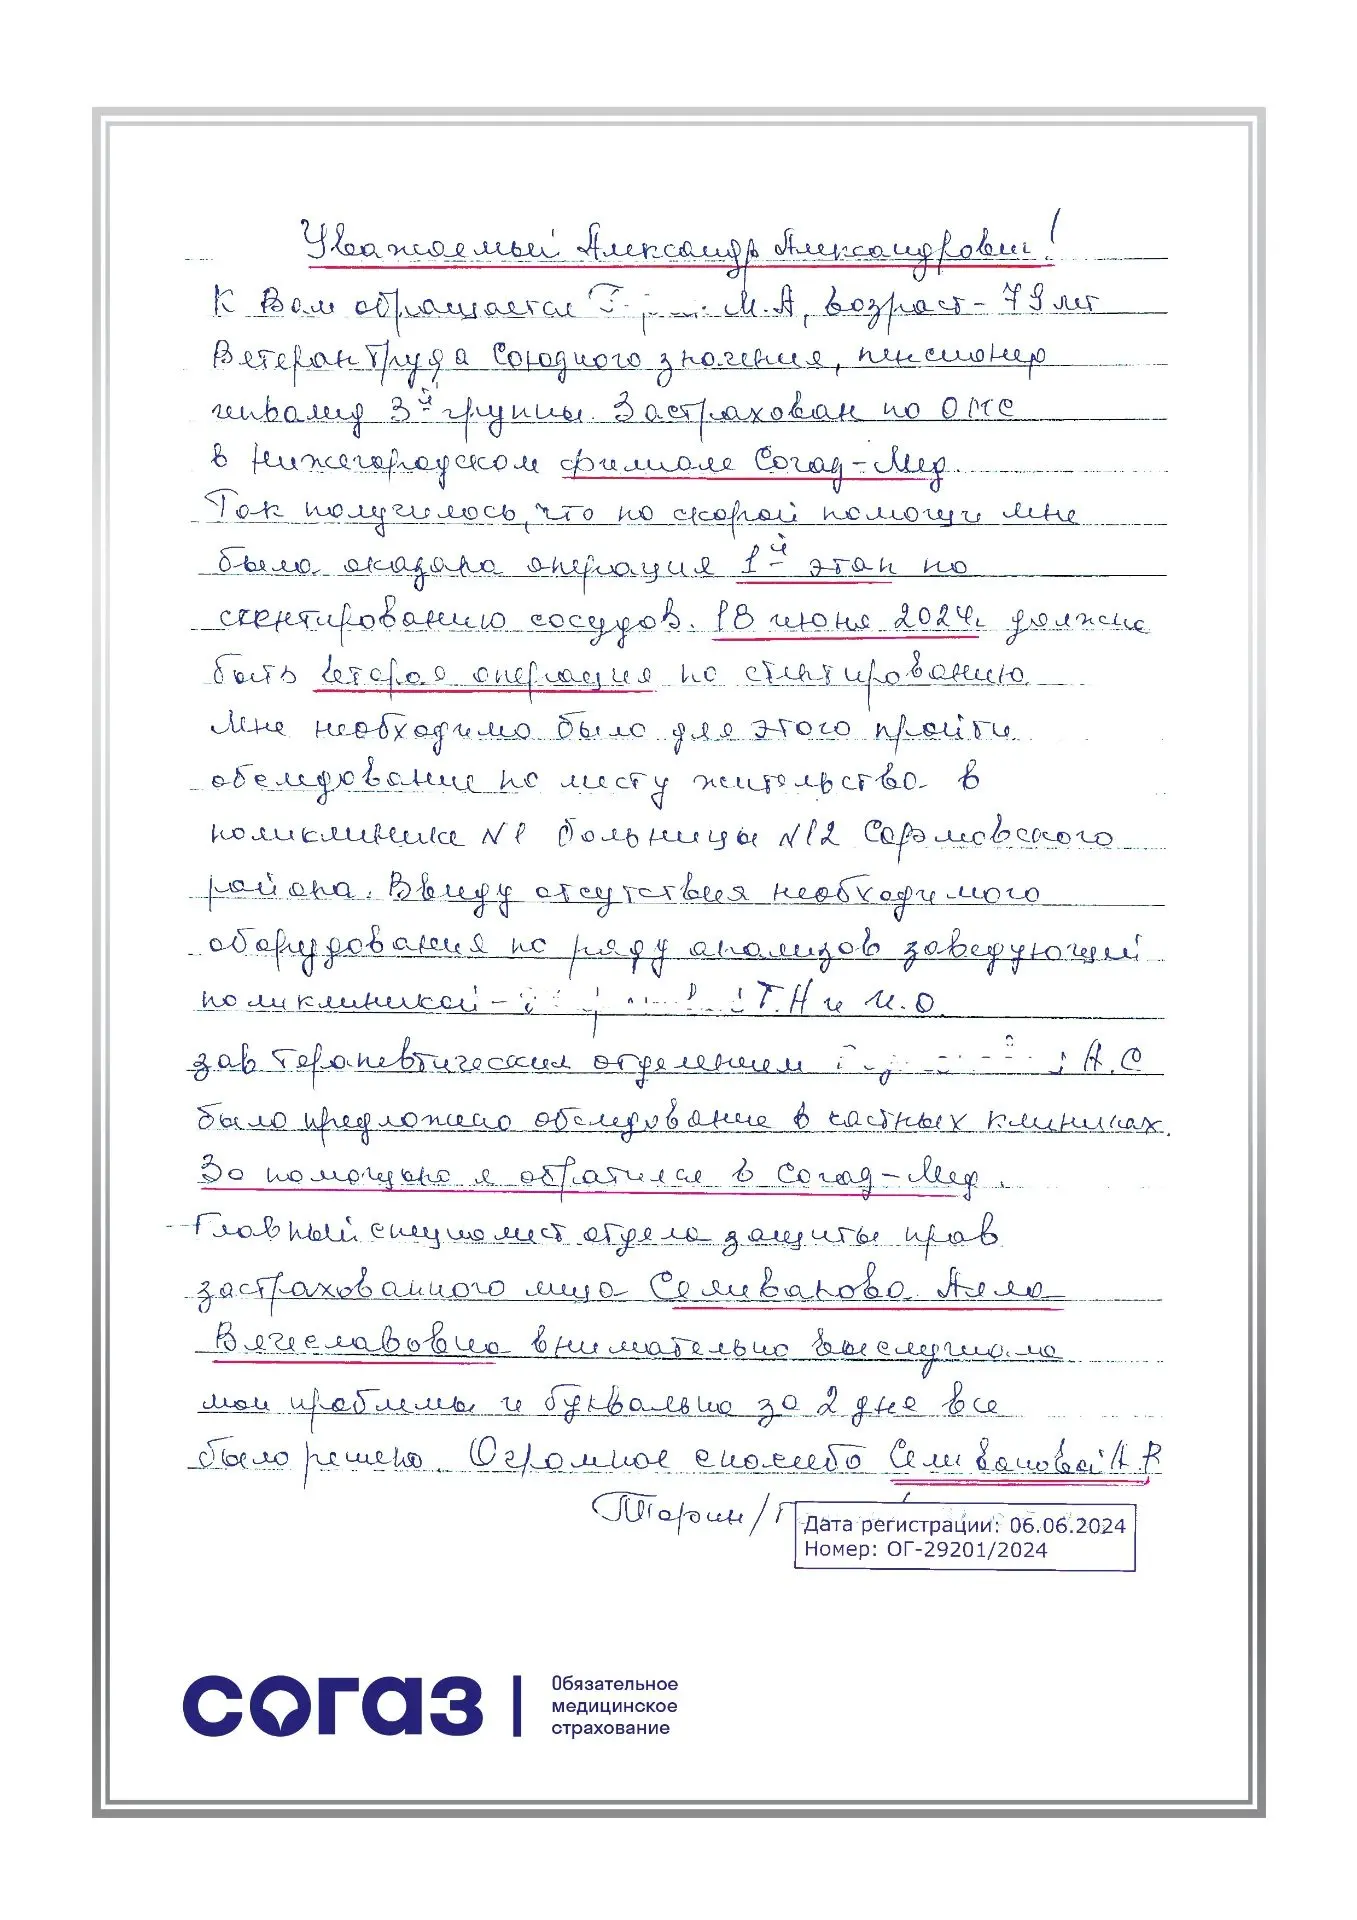 Уважаемый Александр Александрович!
К Вам обращается М.А, возраст - 79 лет
Ветеран Труда Союзного значения, пенсионер
инвалид 3й группы. Застрахован по ОМС
в Нижегородском филиале Согаз-Мед.
Так получилось, что по скорой помощи мне
была оказана операция 1й этап по
стентированию сосудов. 18 июня 2024г. должна
быть вторая операция по стентированию
Мне необходимо было для этого пройти
обследование по месту жительства в
поликлинике №1 больницы №12 Сормовского
района. Ввиду отсутствия необходимого
оборудования по ряду анализов заведующей
поликлиникой - Т.Н и И.О
зав терапевтическим отделением А.С
было предложено обследование в частных клиниках.
За помощью я обратился в Согаз-Мед.
Главный специалист отдела защиты прав
застрахованного лица Селиванова Алла
Вячеславовна внимательно выслушала
мои проблемы и буквально за 2 дня все
было решено. Огромное спасибо Селивановой А.В
Дата регистрации: 06.06.2024
Номер: ОГ-29201/2024
согаз
Обязательное
медицинское
страхование